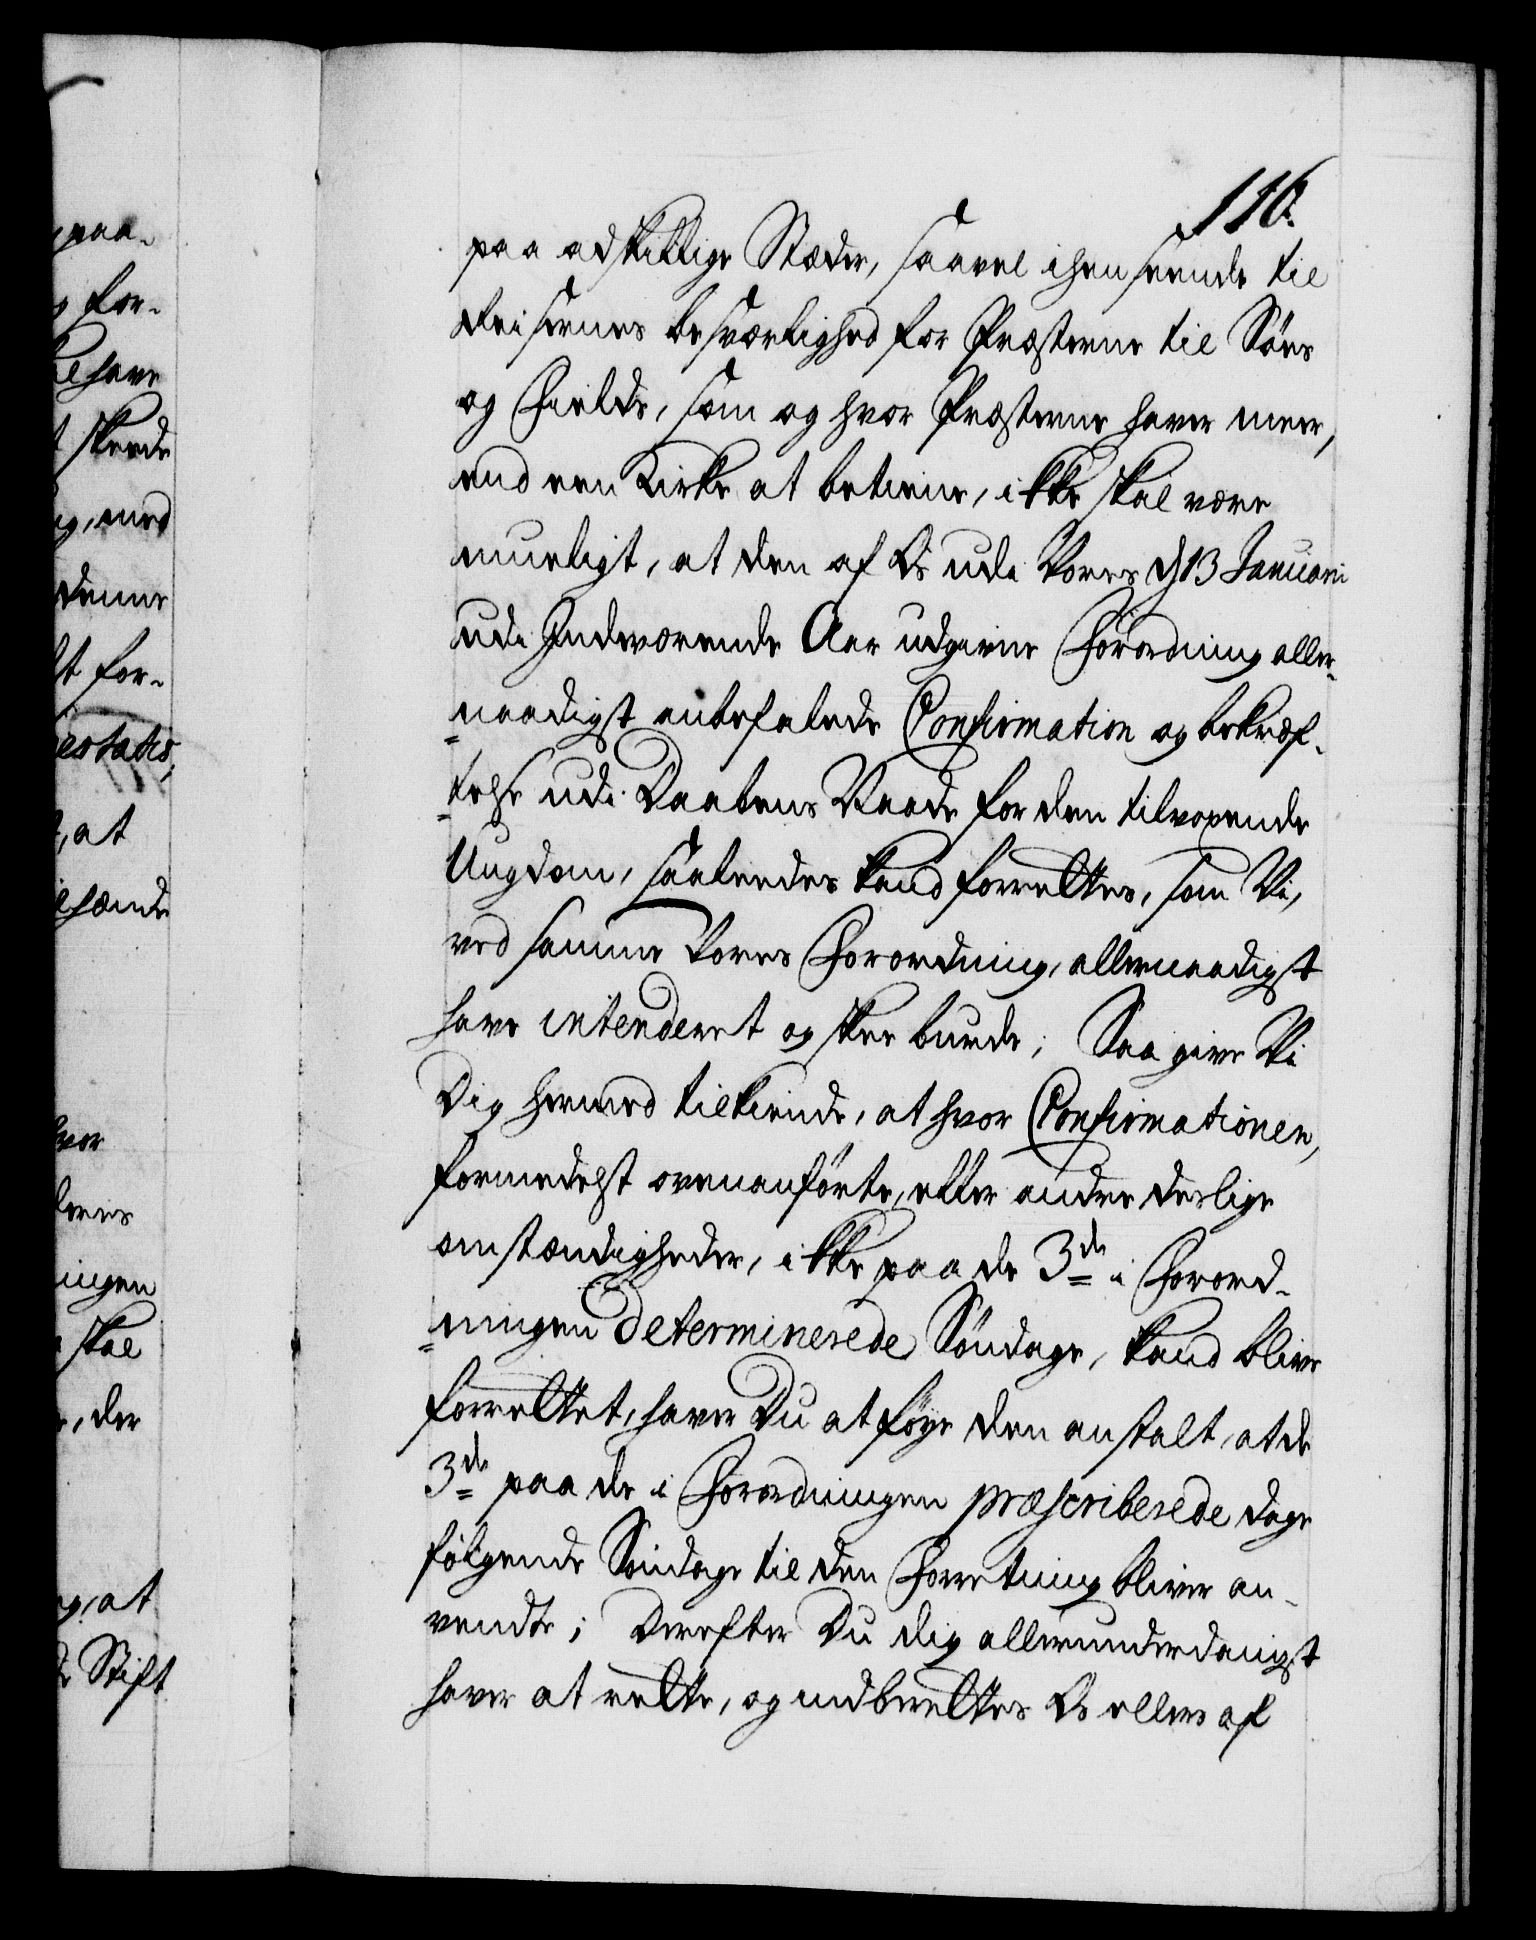 116.
paa adskillige Stæder, saavel i henseende til
Reisernes besværlighed for Præsterne til Søes
og Fields, som og hvor Præsterne haver meer,
end een Kirke at betiene, ikke skal være
mueligt, at den af Os udi Vores d 13 Januarii
udi Indeværende Aar udgivne Forordning aller-
naadigst anbefalede Confirmation og bekræf-
telse udi Daabens Naade for den tilvoxende
Ungdom, saaledes kand forrettes, som Vi,
ved samme Vores Forordning, allernaadigst
have intenderet og skee burde; Saa give Vi
Dig hermed tilkiende, at hvor Confirmationen,
formedelst ovenanførte, eller andre deslige
omstændigheder, ikke paa de 3de i Forord-
ningen determinerede Søndage, kand blive
forrettet, haver Du at føye den anstalt, at de
3de paa de i Forordningen præscriberede dage
følgende Søndage til den Forretning bliver an-
vendte; Derefter Du dig allerunderdanigst
haver at rette, og indberettes Os ellers af
paa-
for-
have
skeede
, med
denne
for-
, at
hvor
deres
ingen
skal
, der
, at
Stift